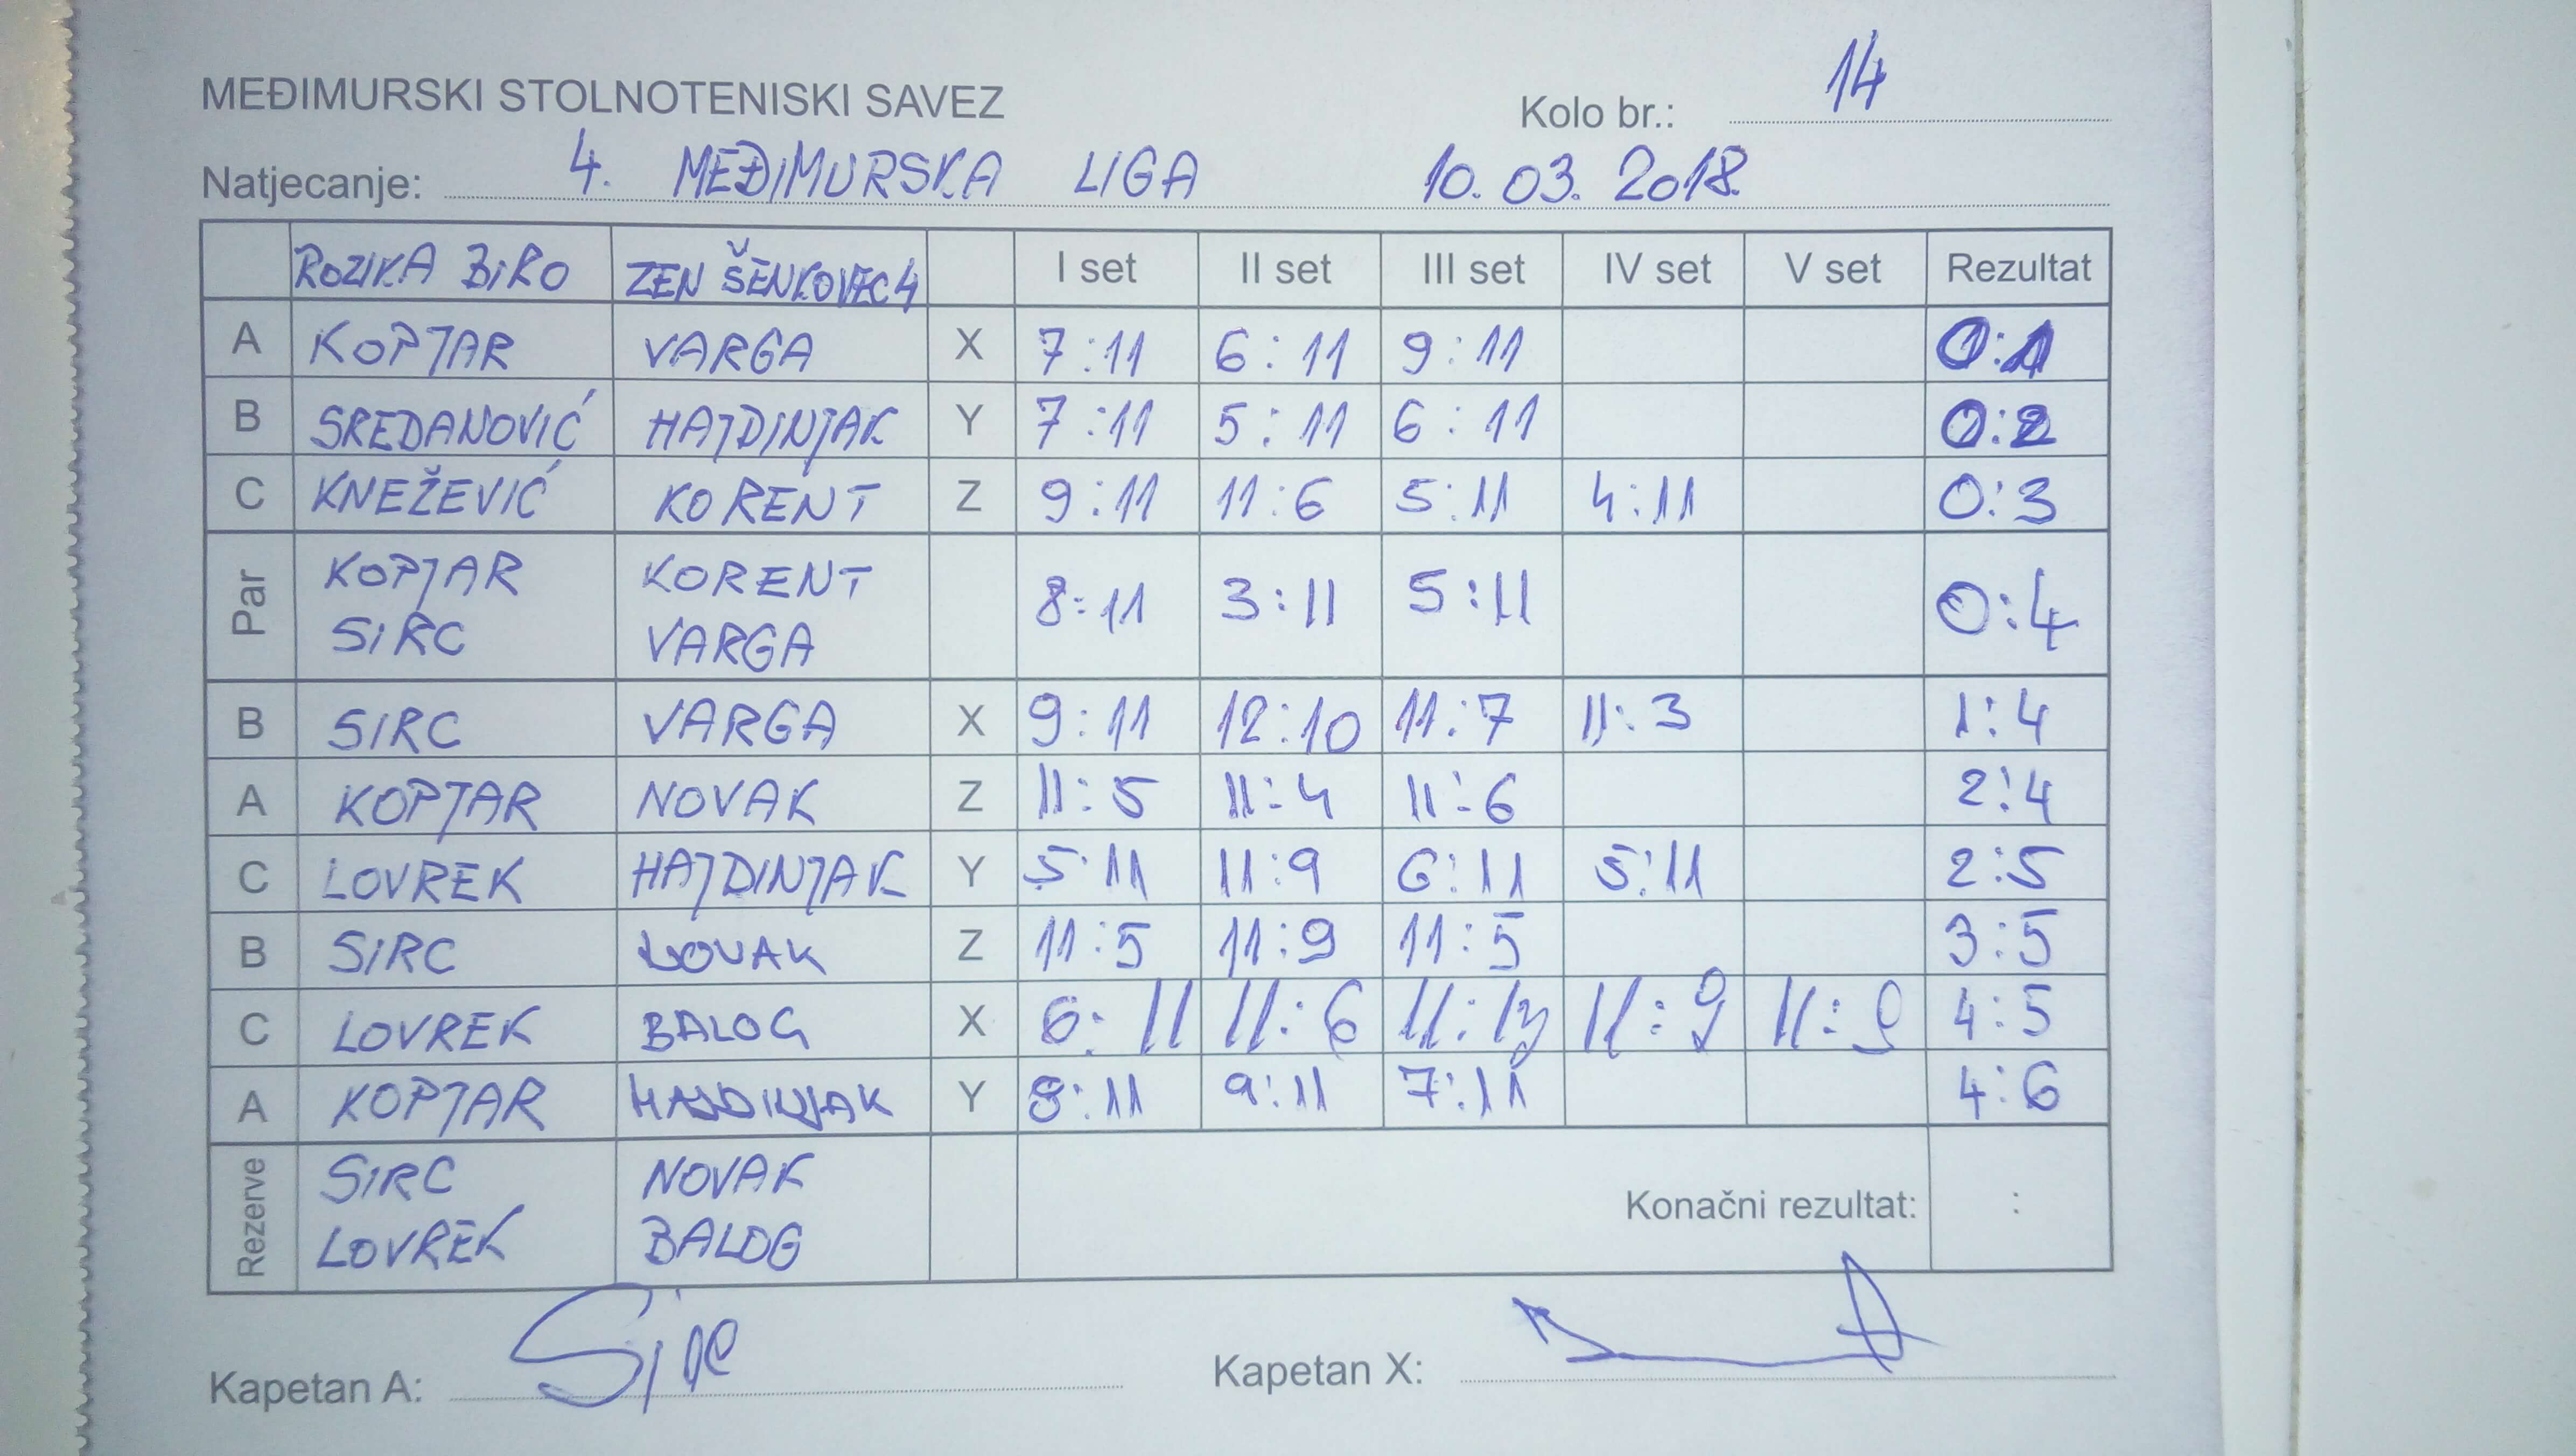 MEĐIMURSKI STOLNOTENISKI SAVEZ Kolo br.: 14
Natjecanje: 4. MEĐIMURSKA LIGA 10. 03. 2018.
ROZIKA BIRO ZEN ŠENKOVEC 4 I set II set III set IV set V set Rezultat
A KOPJAR VARGA X 7:11 6:11 9:11 0:1
B SREDANOVIĆ HAJDINJAK Y 7:11 5:11 6:11 0:2
C KNEŽEVIĆ KORENT Z 9:11 11:6 5:11 4:11 0:3
Par KOPJAR KORENT 8:11 3:11 5:11 0:4
SIRC VARGA
B SIRC VARGA X 9:11 12:10 11:7 11:3 1:4
A KOPJAR NOVAK Z 11:5 11:4 11:6 2:4
C LOVREK HAJDINJAK Y 5:11 11:9 6:11 5:11 2:5
B SIRC NOVAK Z 11:5 11:9 11:5 3:5
C LOVREK BALOG X 6:11 11:6 11:13 11:9 11:9 4:5
A KOPJAR HAJDINJAK Y 8:11 9:11 7:11 4:6
Rezerve SIRC NOVAK Konačni rezultat: :
LOVREK BALOG
Kapetan A: Sirc Kapetan X: